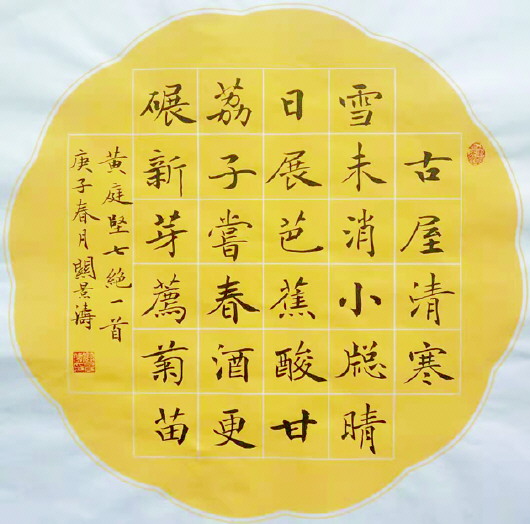 古屋清寒
雪未消小牕晴
日展芭蕉酸甘
荔子嘗春酒更
碾新芽薦菊苗
黄庭堅七絕一首
庚子春月關景濤